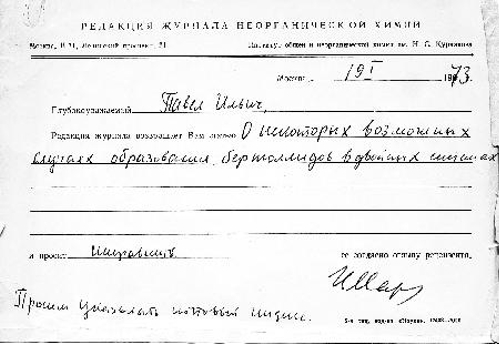 РЕДАКЦИЯ ЖУРНАЛА НЕОРГАНИЧЕСКОЙ ХИМИИ
Москва, В-71, Ленинский проспект, 31 Институт общей и неорганической химии им. Н. С. Курнакова
Москва 19 I 1973.
Глубокоуважаемый Павел Ильич,
Редакция журнала возвращает Вам статью О некоторых возможных
случаях образования бертоллидов в двойных системах
и просит исправить ее согласно отзыву рецензента.
Просим указывать почтовый индекс.